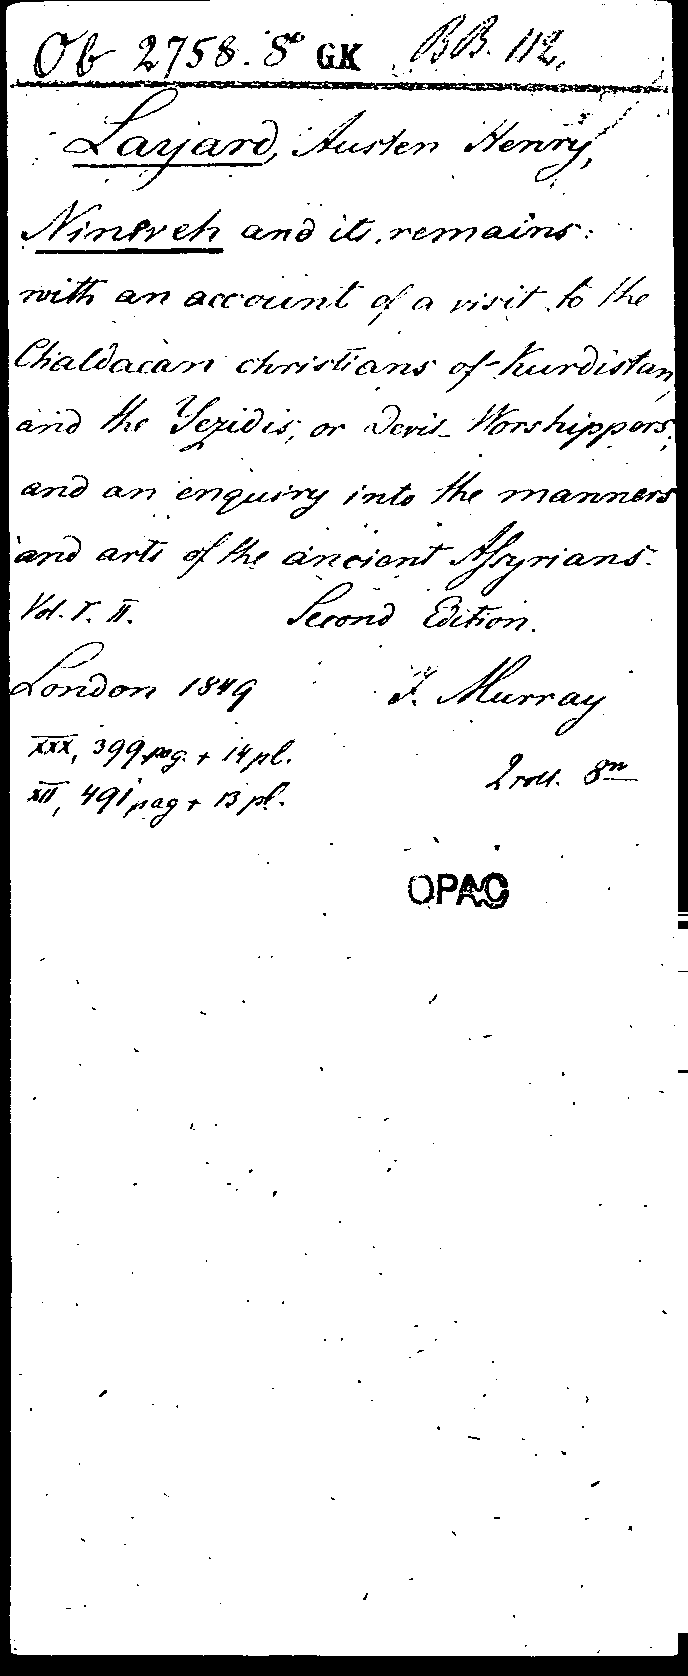 Ob 2758. 8° GK BB. 112.
Layard, Austen Henry,
Nineveh and its remains:
with an account of a visit to the
Chaldaean christians of Kurdistan,
and the Yezidis, or Devil-Worshippers;
and an enquiry into the manners
and arts of the ancient Aſsyrians.
Vol. I. II. Second Edition.
London 1849 J. Murray
XXX, 399 pag. + 14 pl.
XII, 491 pag + 13 pl. 2 voll. 8°
OPAC